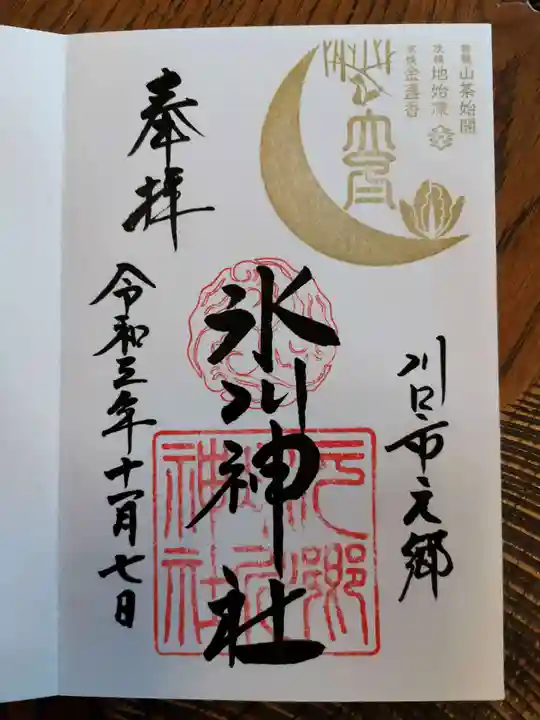 初候 山茶始開
次候 地始凍
末候 金盞香
立冬
川口市元郷
氷川神社
元郷
氷川
神社
奉拝
令和三年十一月七日